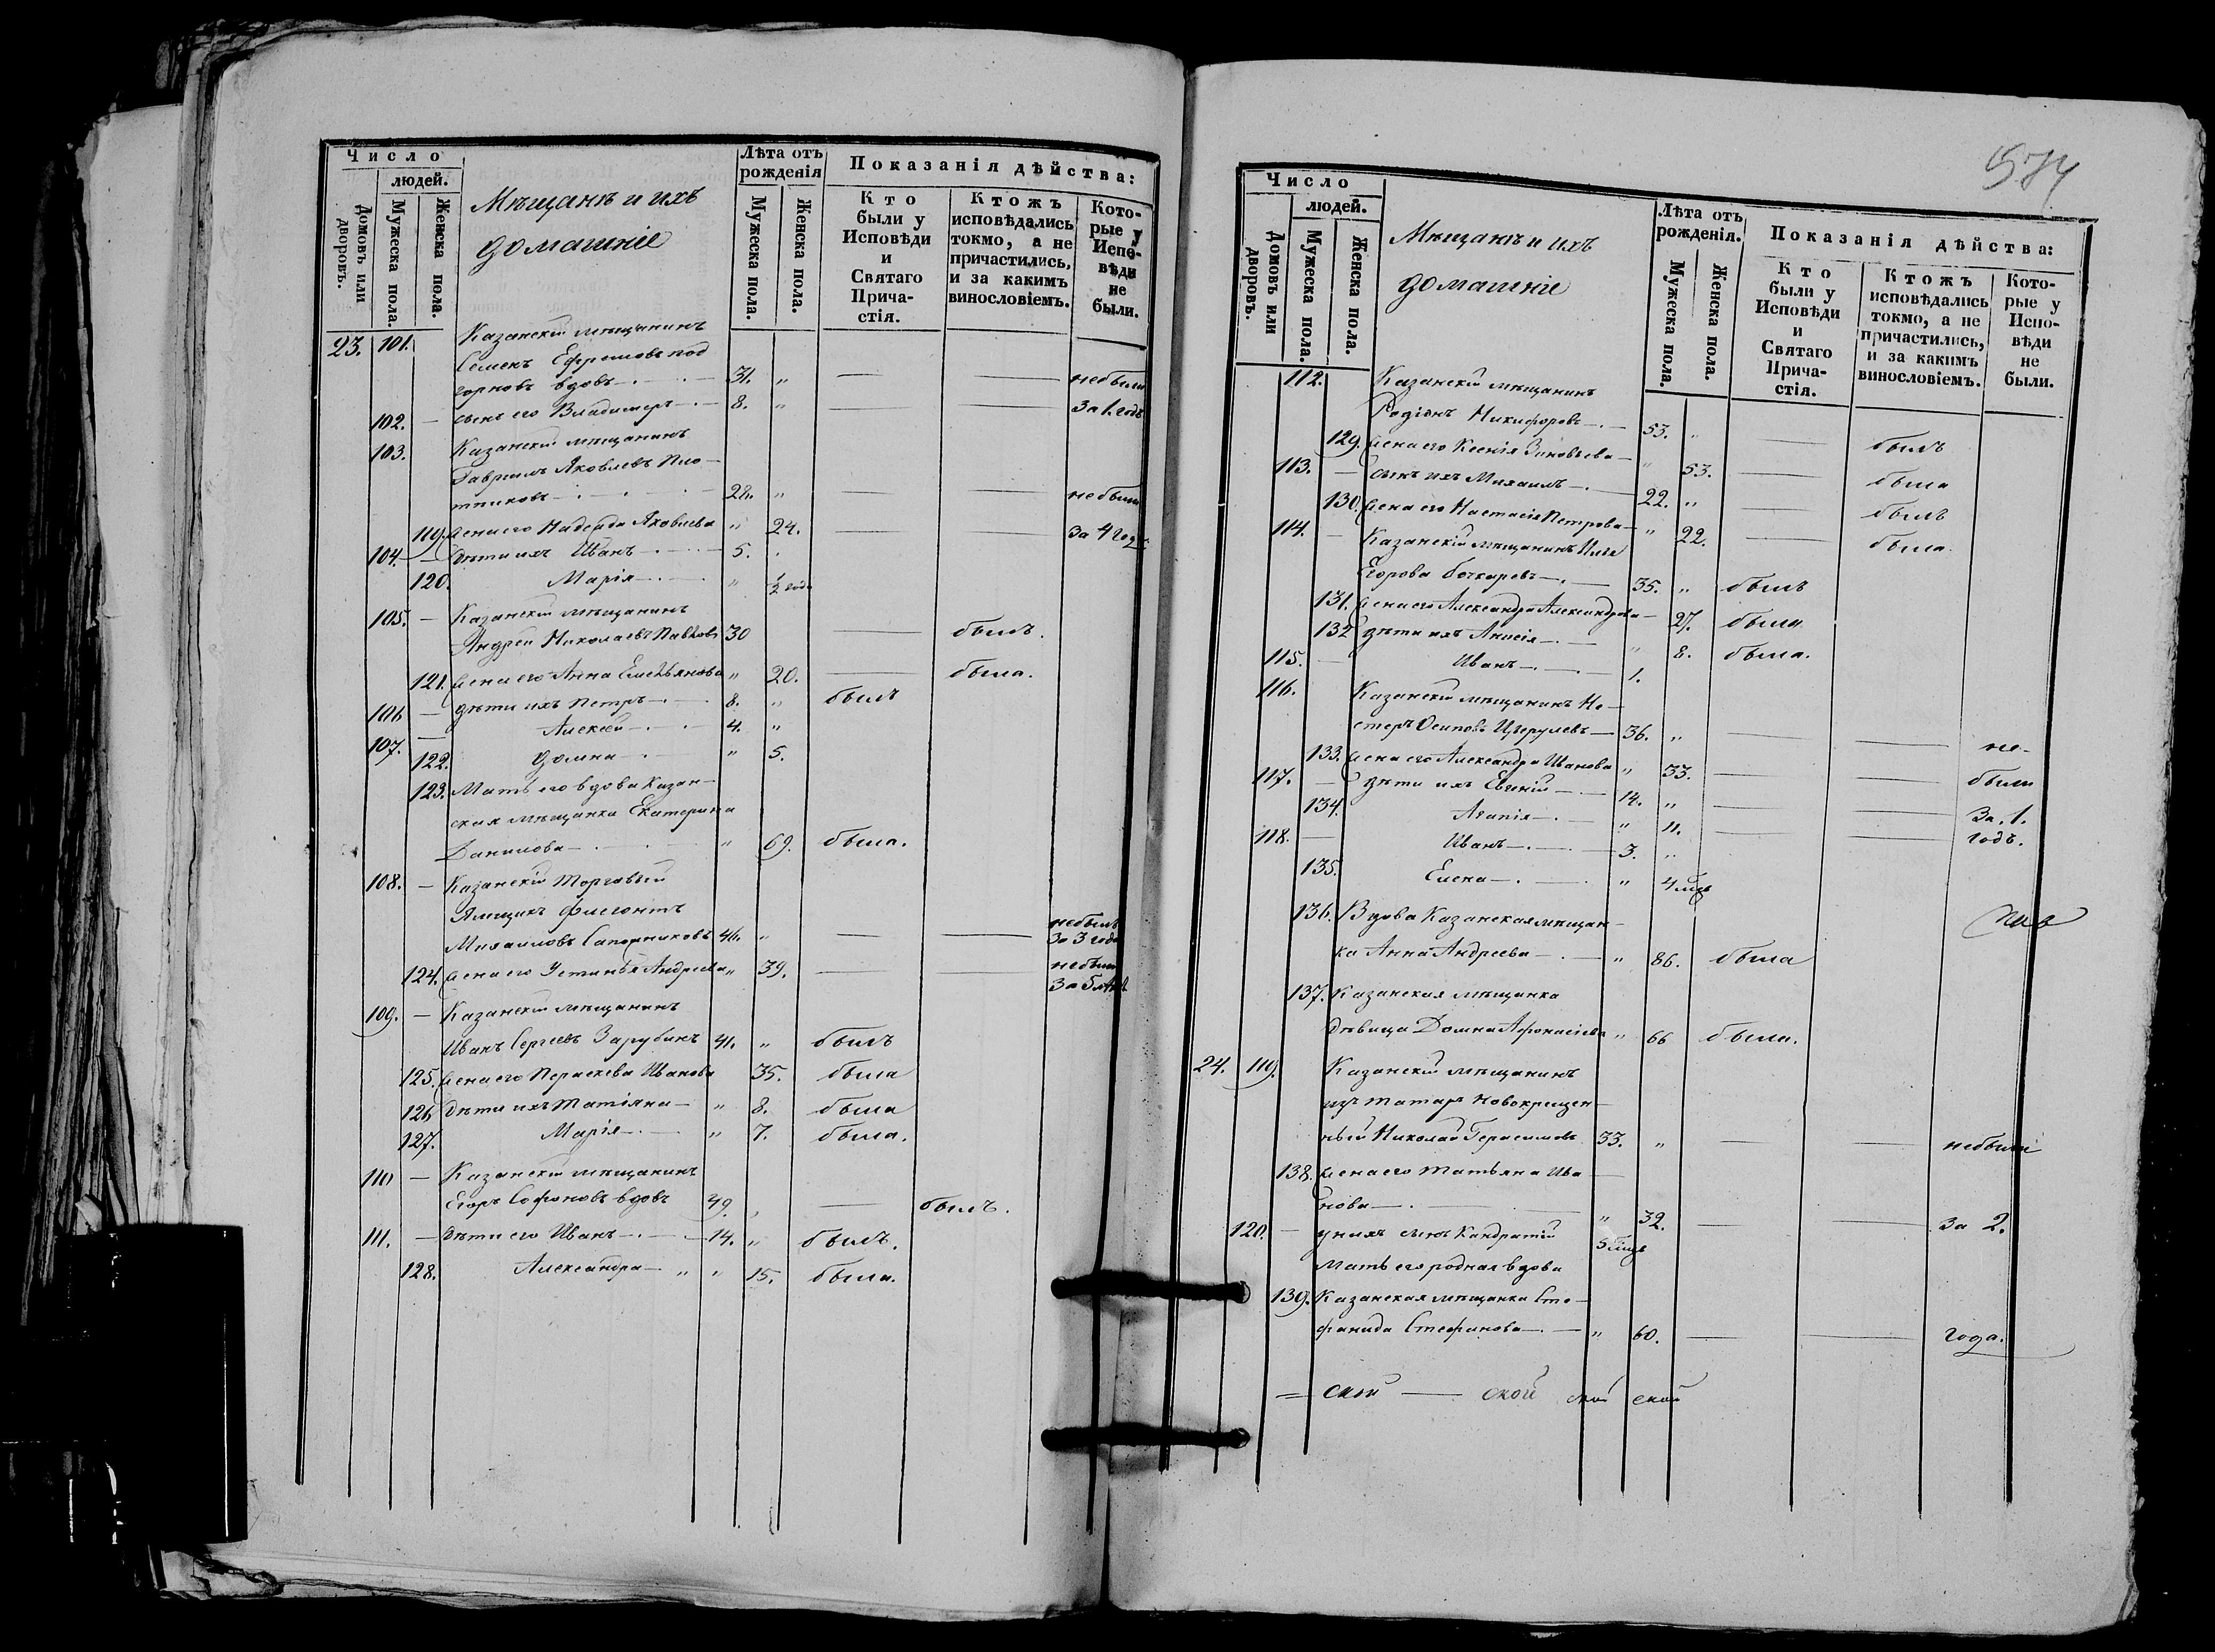 Число
людей.
Домовъ или дворовъ.
Мужеска пола.
Женска пола.
Мѣщанъ и ихъ
домашніе
Лѣта отъ рожденія
Мужеска пола.
Женска пола.
Показанія дѣйства:
Кто были у Исповѣди и Святаго Прича-стія.
Ктожъ исповѣдались токмо, а не причастились, и за какимъ винословіемъ.
Кото-рые у Испо-вѣди не были.
23. 101. Казанскій мѣщанинъ
Семенъ Ефремовъ под
горновъ вдовъ 31. " — — небыли
102. — сынъ его Владимеръ 8. " — — За 1. годъ
103. Казанскій мѣщанинъ
Гавріилъ Яковлевъ Пло-
тниковъ 28. " — — небыли
119. Жена его Надежда Яковлева " 24. — — за 4 года
104. — Дѣти ихъ Иванъ 5.
120. Марія " ½ года
105. — Казанскій мѣщанинъ
Андрей Николаевъ Павловъ 30 — былъ.
121. Жена его Анна Емельянова " 20. — была.
106 — дѣти ихъ Петръ 8. " былъ
107. — Алексѣй 4. "
122. Домна " 5.
123. Мать его вдова Казан-
ская мѣщанка Екатерина
Данилова " 69. была.
108. — Казанскій Торговый
Ямщикъ Флегонтъ
Михаиловъ Сапожниковъ 46. " — — небылъ За 3 года
124. Жена его Устинья Андреева " 39. — — небыла За 5 лѣтъ
109. — Казанскій мѣщанинъ
Иванъ Сергеевъ Зарубинъ 41. " былъ
125. Жена его Параскева Иванова 35. была
126 Дѣти ихъ Татіяна " 8. была
127. Марія " 7. была.
110 — Казанскій мѣщанинъ
Егоръ Софоновъ вдовъ 49. — былъ.
111. — Дѣти его Иванъ 14. " былъ.
128. Александра " " 15. была.
574
Число
людей.
Домовъ или дворовъ.
Мужеска пола.
Женска пола.
Мѣщанъ и ихъ
домашніе
Лѣта отъ рожденія.
Мужеска пола.
Женска пола.
Показанія дѣйства:
Кто были у Исповѣди и Святаго Прича-стія.
Ктожъ исповѣдались токмо, а не причастились, и за какимъ винословіемъ.
Кото-рые у Испо-вѣди не были.
112. Казанскій мѣщанинъ
Родіонъ Никифоровъ 53. " — былъ
129. Жена его Ксенія Зиновьева " 53. — была
113. — сынъ ихъ Михаилъ 22. " — былъ
130. Жена его Настасія Петрова " 22. — была
114. — Казанскій мѣщанинъ Илья
Егорова Бочкаревъ 35. " былъ
131. Жена его Александра Александрова 27. была
132 дѣти ихъ Анисія " 8. была.
115. — Иванъ 1.
116. Казанскій мѣщанинъ Не-
стеръ Осиповъ 36. " — — не-
133. Жена его Александра Иванова " 33. — были
117. — Дѣти ихъ Евгеній 14. " — За. 1.
134. Агапія " 11. — годъ.
118. — Иванъ 3. "
135. Елена " 4 мцъ
136. Вдова Казанская мѣщан-
ка Анна Андреева " 86. была
137. Казанская мѣщанка
дѣвица Домна Афонасіева " 66 была.
24. 119. Казанскій мѣщанинъ
изъ татаръ новокрещен-
ный Николай Герасимовъ 33. " — — небыли
138. Жена его Татьяна Ива
нова " 32. — — за 2.
120. — у нихъ сынъ Кандратій 5 мцъ
Мать его родная вдова
139. Казанская мѣщанка Сте-
фанида Стефанова " 60. — — года.
= ской — ской ской ской